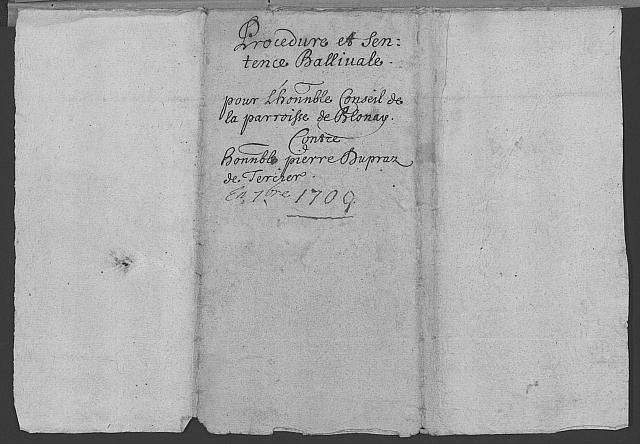 Procedure et Sen:
tence Ballivale.
pour L'honnble Conseil de
la parroisse de Blonay.
Contre
honnble pierre Dupraz
de Tercier.
En 7bre 1709.